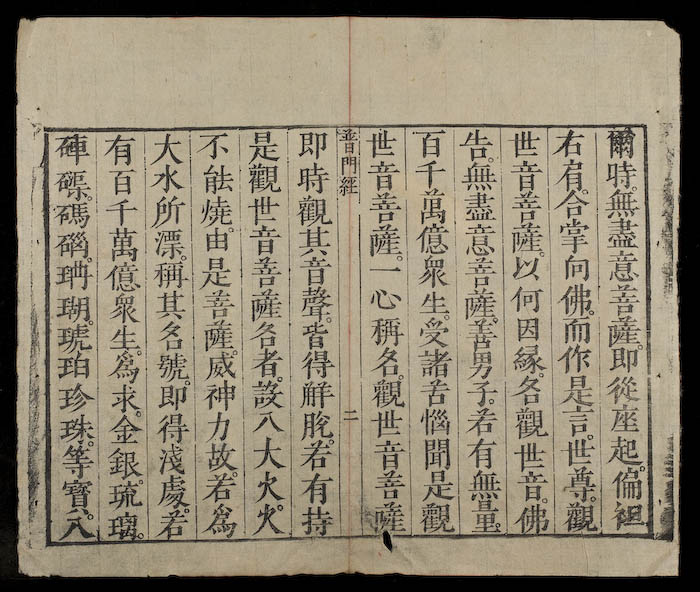 爾時。無盡意菩薩。即從座起。偏袒
右肩。合掌向佛。而作是言。世尊。觀
世音菩薩。以何因緣。名觀世音。佛
告。無盡意菩薩。善男子。若有無量。
百千萬億衆生。受諸苦惱聞是觀
世音菩薩。一心稱名。觀世音菩薩
普門經
二
即時觀其音聲。皆得解脫。若有持
是觀世音菩薩名者。設入大火。火
不能燒。由是菩薩。威神力故。若為
大水所漂。稱其名號。即得淺處。若
有百千萬億衆生。為求。金銀。琉璃。
硨磲。碼碯。珊瑚。琥珀珍珠。等寶。入